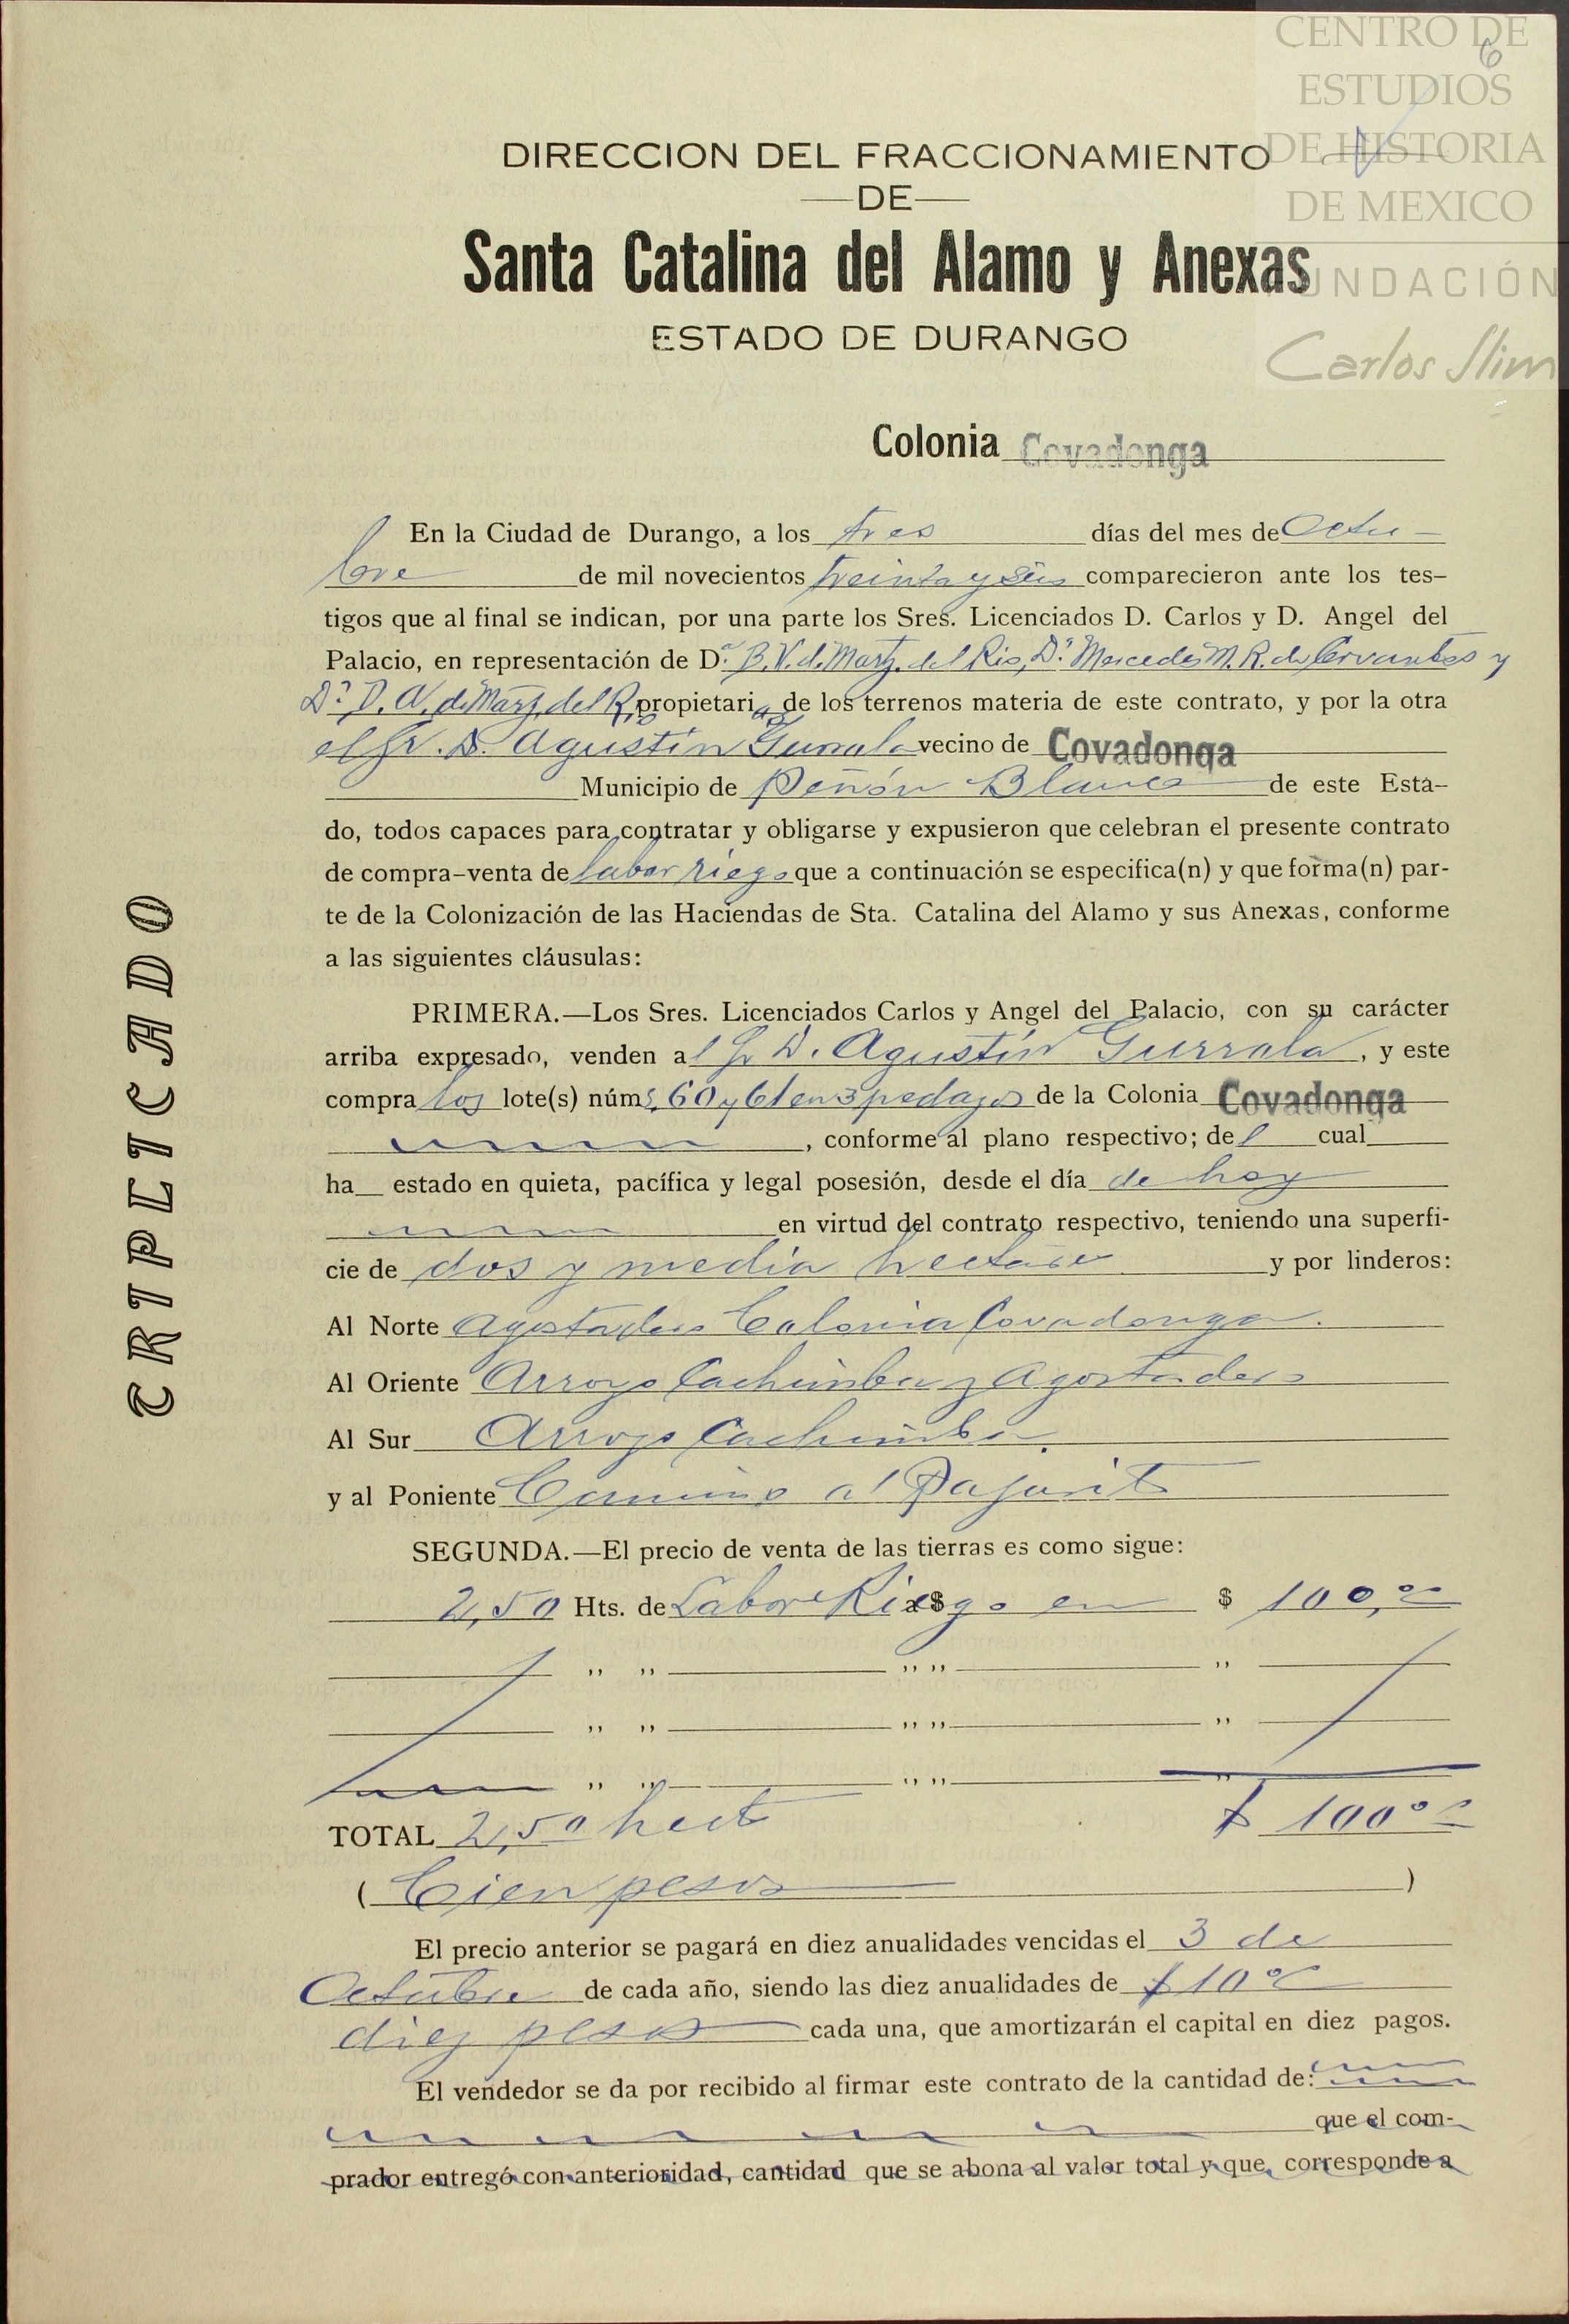 CENTRO DE
ESTUDIOS
DE HISTORIA
DE MEXICO
FUNDACIÓN
Carlos Slim
6
DIRECCION DEL FRACCIONAMIENTO
—DE—
Santa Catalina del Alamo y Anexas
ESTADO DE DURANGO
Colonia Covadonga
TRIPLICADO
En la Ciudad de Durango, a los tres días del mes de Octu-
bre de mil novecientos treinta y seis comparecieron ante los tes-
tigos que al final se indican, por una parte los Sres. Licenciados D. Carlos y D. Angel del
Palacio, en representación de Dª. B. V. de Martz. del Rio, Dª. Mercedes M. R. de Cervantes y
Dª. D. V. de Martz. del Rio propietarias de los terrenos materia de este contrato, y por la otra
el Sr. D. Agustín Gurrola vecino de Covadonga
Municipio de Peñón Blanco de este Esta-
do, todos capaces para contratar y obligarse y expusieron que celebran el presente contrato
de compra-venta de labor riego que a continuación se especifica(n) y que forma(n) par-
te de la Colonización de las Haciendas de Sta. Catalina del Alamo y sus Anexas, conforme
a las siguientes cláusulas:
PRIMERA.—Los Sres. Licenciados Carlos y Angel del Palacio, con su carácter
arriba expresado, venden al Sr D. Agustín Gurrola, y este
compra los lote(s) núms. 60 y 61 en 3 pedazos de la Colonia Covadonga
, conforme al plano respectivo; del cual
ha estado en quieta, pacífica y legal posesión, desde el día de hoy
en virtud del contrato respectivo, teniendo una superfi-
cie de dos y media hectare y por linderos:
Al Norte Agostadero Colonia Covadonga.
Al Oriente Arroyo Cachimba y Agostadero
Al Sur Arroyo Cachimba.
y al Poniente Camino al Pajarit
SEGUNDA.—El precio de venta de las tierras es como sigue:
2,50 Hts. de Labor Riego en $ 100,00
,, ,, ,, ,, ,,
,, ,, ,, ,, ,,
,, ,, ,, ,, ,,
TOTAL 2,50 hect $ 100 00
( Cien pesos )
El precio anterior se pagará en diez anualidades vencidas el 3 de
Octubre de cada año, siendo las diez anualidades de $ 10 00
diez pesos cada una, que amortizarán el capital en diez pagos.
El vendedor se da por recibido al firmar este contrato de la cantidad de:
que el com-
prador entregó con anterioridad, cantidad que se abona al valor total y que corresponde a